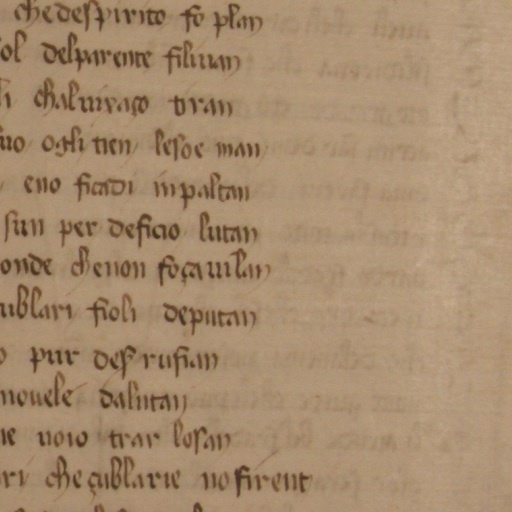 che de spirito fo plan
ol del parente filiuan
li chal viraço tran
uo ogli tien le soe man
eno ficadi in paltan
sun per deficio lutan
onde che non foça vilan
ublari fioli deputan
o pur des rufian
novele da lutan
ne voio trar lo san
ri che çublarie no firent